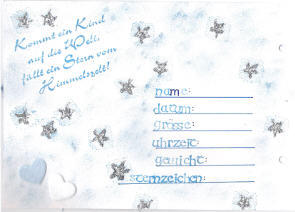 Kommt ein Kind
auf die Welt,
fällt ein Stern vom
Himmelszelt!
name:
datum:
grösse:
uhrzeit:
gewicht:
sternzeichen: